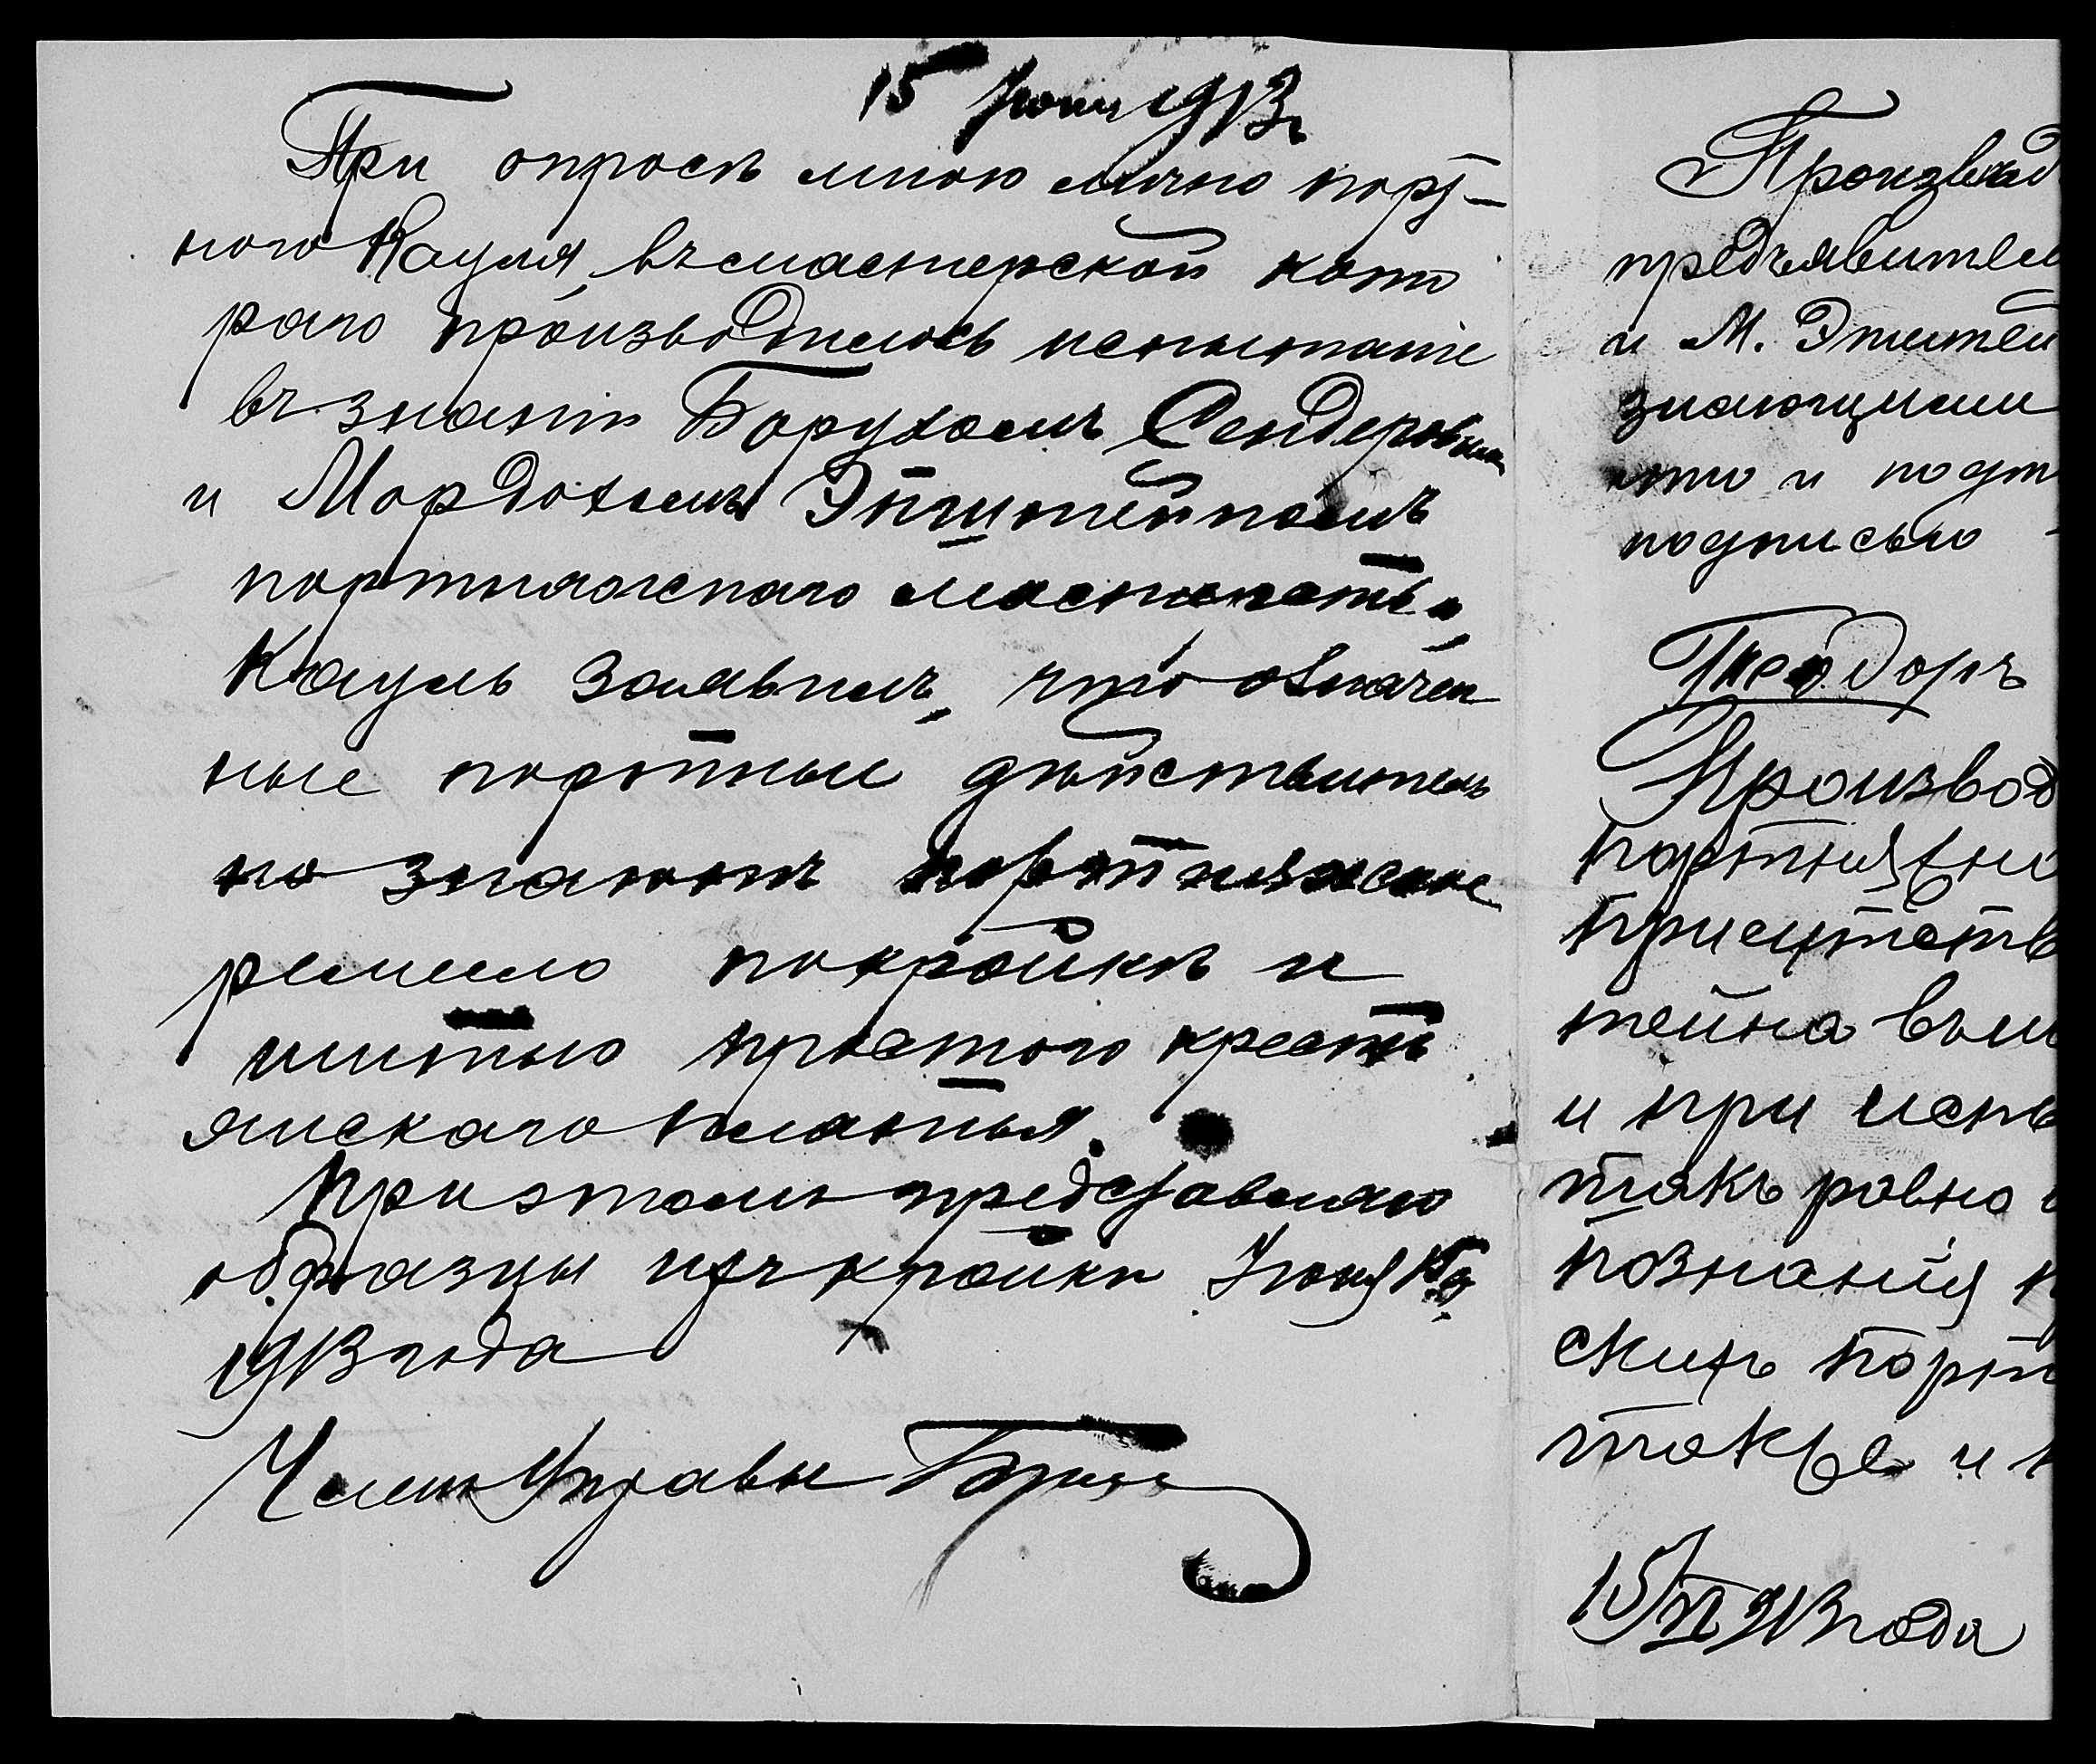 15 Июня 1913 г.
При опросѣ мною лично порт-
ного Кауля, въ мастерской кото
раго производилось испытаніе
въ знаніи Борухомъ Сендеровым
и Мордохемъ Эпштейномъ
портняжнаго мастерства,
Кауль заявилъ, что означен
ные портные дѣйствитель
но знаютъ портняжное
ремесло покройкѣ и
шитью простого кресть
янскаго платья.
При этомъ представляю
образцы ихъ кройки Июня 15 д.
1913 года
Членъ Управы
Производ
предъявител
и М. Эпштей
знающими
что и подт
подписью
Теодоръ
Производ
портняжно
присутств
тейна въ м
и при испы
такъ равно
познанія п
скихъ порт
также и к
15/VI 913 года